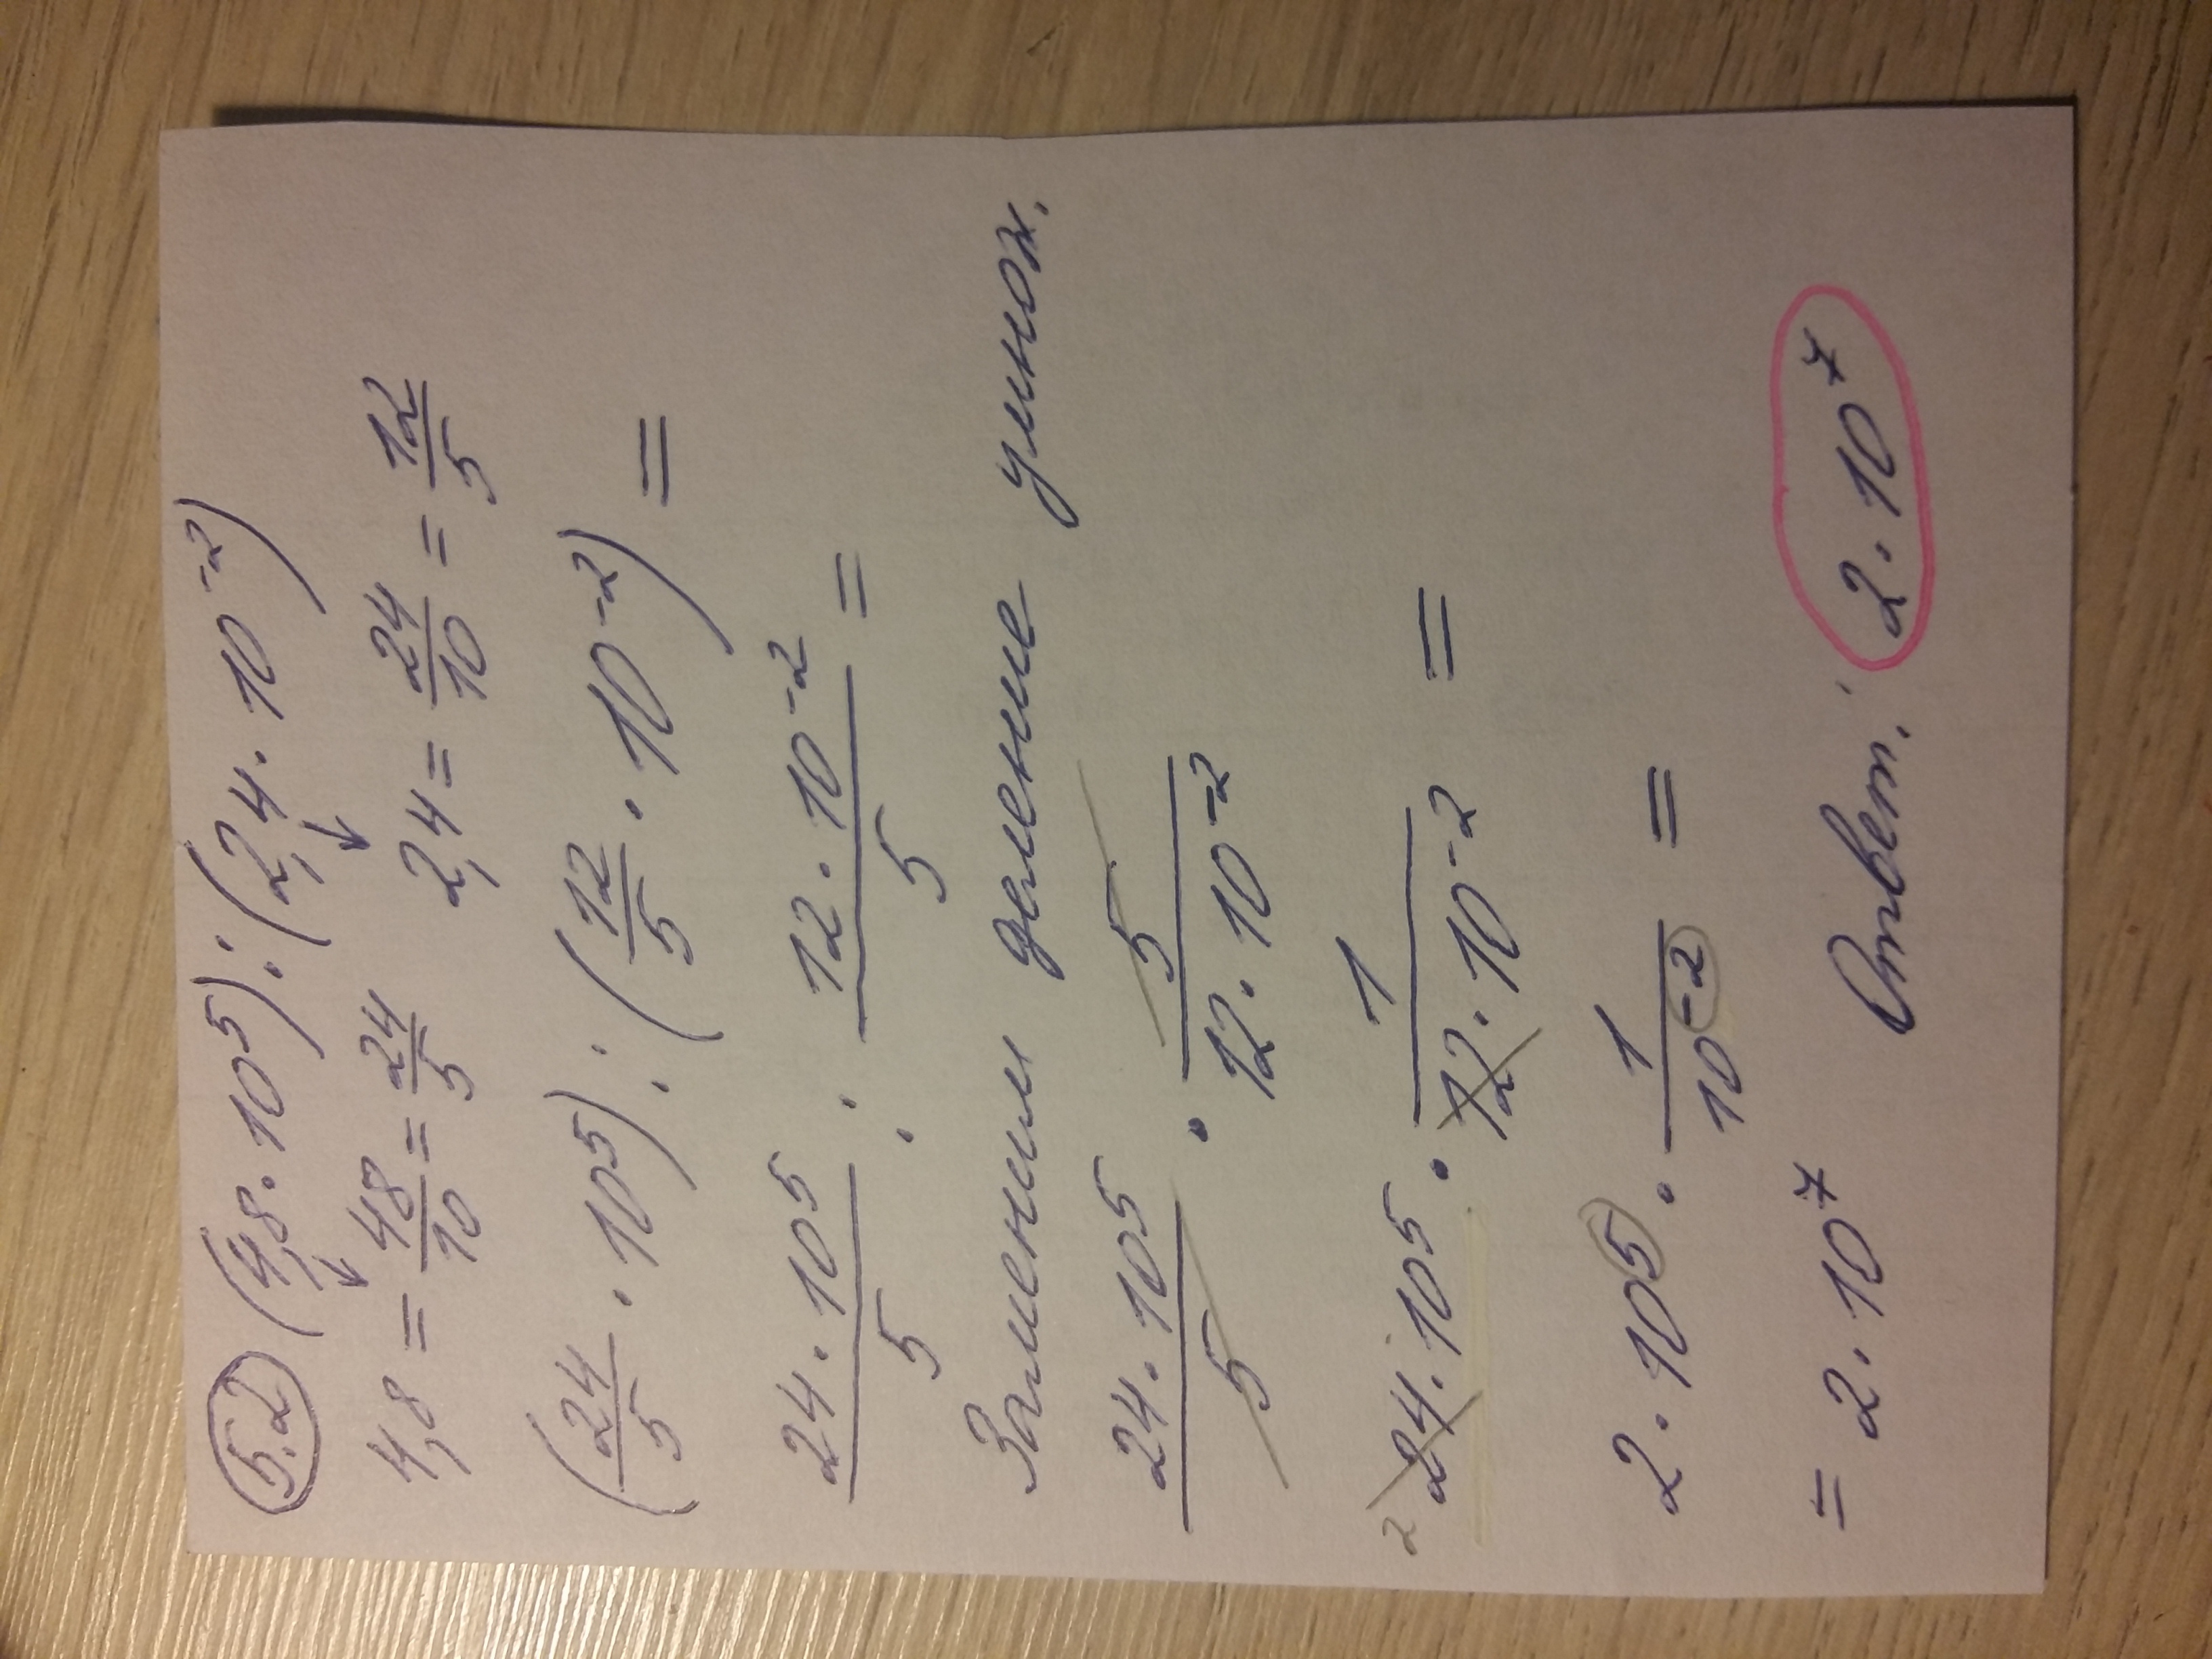 5.2 (4,8 · 10⁵) : (2,4 · 10⁻²)
4,8 = 48/10 = 24/5 2,4 = 24/10 = 12/5
(24/5 · 10⁵) : (12/5 · 10⁻²) =
24 · 10⁵/5 : 12 · 10⁻²/5 =
Заменим деление умнож.
24 · 10⁵/5 · 5/12 · 10⁻²
2 24 · 10⁵ · 1/12 · 10⁻² =
2 · 10⁵ · 1/10⁻² =
= 2 · 10⁷ Ответ: 2 · 10⁷